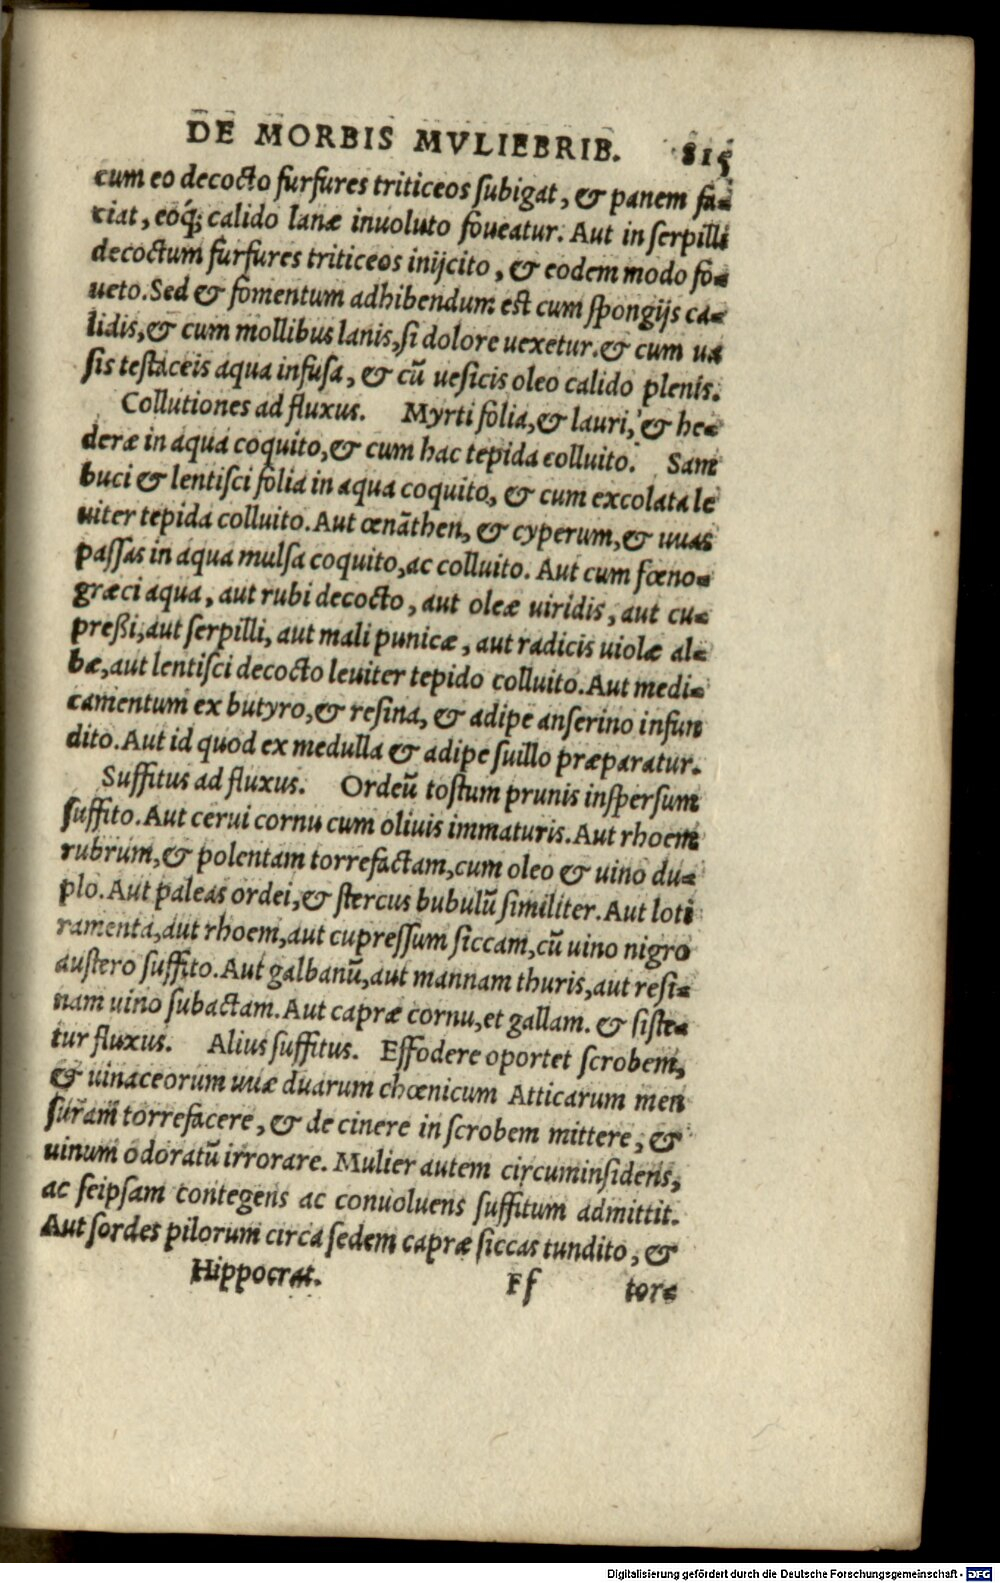 DE MORBIS MVLIEBRIB. 815
cum eo decocto furfures triticeos subigat, & panem fa-
ciat, eoq́; calido lanæ inuoluto foueatur. Aut in serpilli
decoctum furfures triticeos inijcito, & eodem modo fo-
ueto. Sed & fomentum adhibendum est cum spongijs ca-
lidis, & cum mollibus lanis, si dolore uexetur. & cum ua
sis testaceis aqua infusa, & cũ uesicis oleo calido plenis.
Collutiones ad fluxus. Myrti folia, & lauri, & he-
deræ in aqua coquito, & cum hac tepida colluito. Sam
buci & lentisci folia in aqua coquito, & cum excolata le
uiter tepida colluito. Aut œnãthen, & cyperum, & uuas
passas in aqua mulsa coquito, ac colluito. Aut cum fœno-
græci aqua, aut rubi decocto, aut oleæ uiridis, aut cu-
preßi, aut serpilli, aut mali punicæ, aut radicis uiolæ al-
bæ, aut lentisci decocto leuiter tepido colluito. Aut medi-
camentum ex butyro, & resina, & adipe anserino infun
dito. Aut id quod ex medulla & adipe suillo præparatur.
Suffitus ad fluxus. Ordeũ tostum prunis inspersum
suffito. Aut cerui cornu cum oliuis immaturis. Aut rhoem
rubrum, & polentam torrefactam, cum oleo & uino du-
plo. Aut paleas ordei, & stercus bubulũ similiter. Aut loti
ramenta, aut rhoem, aut cupressum siccam, cũ uino nigro
austero suffito. Aut galbanũ, aut mannam thuris, aut resi-
nam uino subactam. Aut capræ cornu, et gallam. & siste-
tur fluxus. Alius suffitus. Effodere oportet scrobem,
& uinaceorum uuæ duarum chœnicum Atticarum men
suram torrefacere, & de cinere in scrobem mittere, &
uinum odoratũ irrorare. Mulier autem circuminsidens,
ac seipsam contegens ac conuoluens suffitum admittit.
Aut sordes pilorum circa sedem capræ siccas tundito, &
Hippocrat. Ff tor-
Digitalisierung gefördert durch die Deutsche Forschungsgemeinschaft - DFG